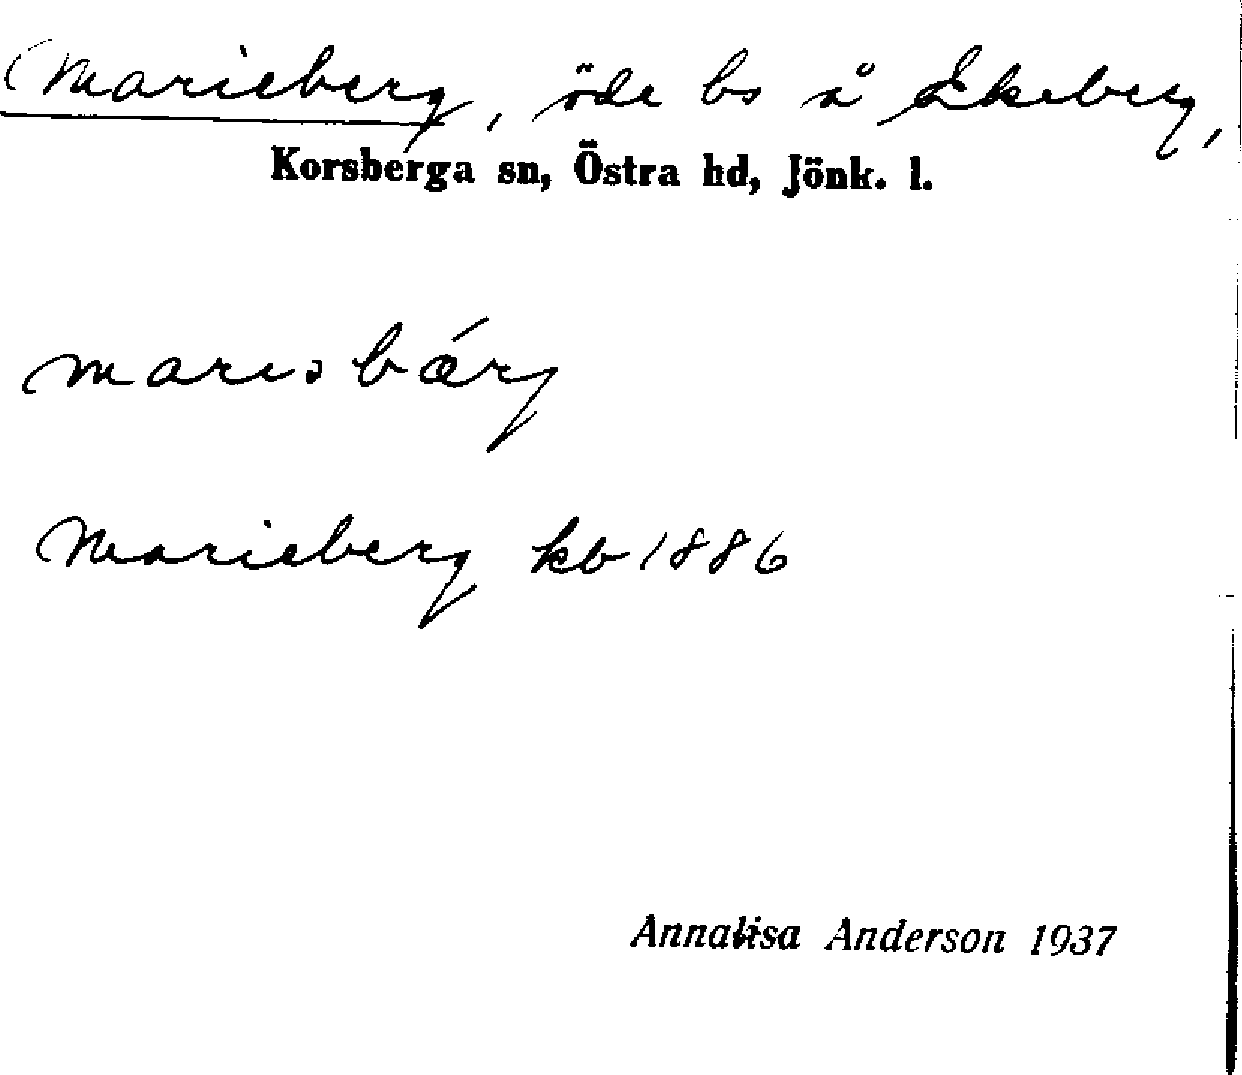 Marieberg, öde bs å Ekeberg,
Korsberga sn, Östra hd, Jönk. l.
marɩsbǽrj
Marieberg kb 1886
Annalisa Anderson 1937